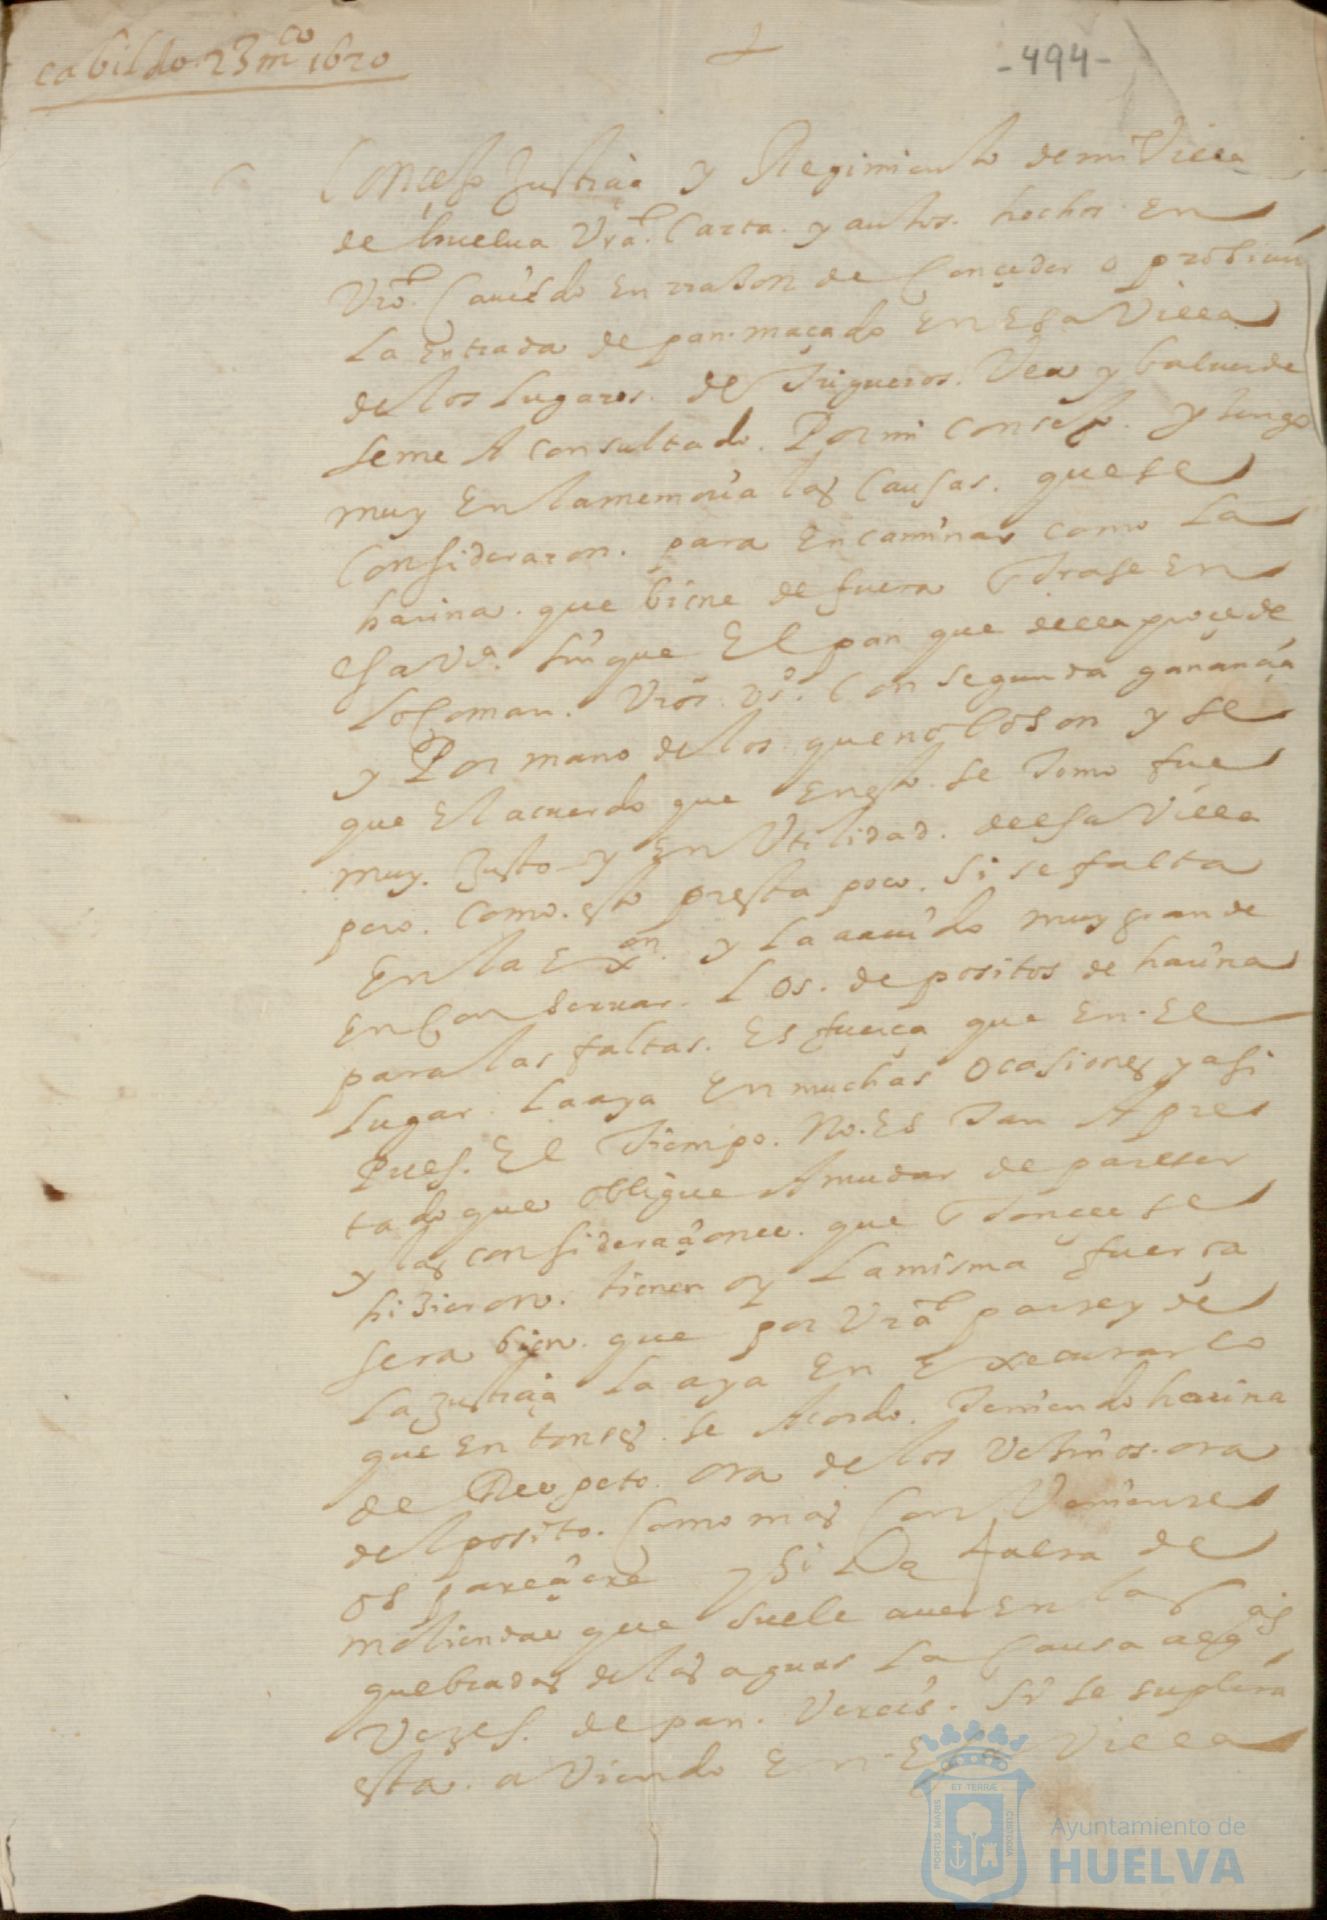 cabildo 23 mço 1620
-494-
Conçejo Justiçia y Regimiento de mi Villa
de huelua Vrã. Carta. y autos. hechos en
Vrõ. Cauildo en rraçon de Conçeder o
La entrada de pan. maçado en Esa Villa
de los Lugares. de Trigueros. Vea y balverde
seme A consultado. Por mi consejo. y tengo
muy En la memoria las Causas. que se
Consideraron. para encaminar como La
harina. que biene de fuera Entrase En
Esa Va. sin que El pan que della proçede
lo Coman. Vrõs. vos. Con segunda ganançia
y Por mano de los que no lo son y se
que El acuerdo que En esto. se Tomo fue
muy. Justo y En Utilidad. de Esa Villa
pero. Como. esto presta poco. si se falta
En la Exon. y La auido muy grande
En Conseruar. Los. depositos de harina
para las faltas. Es fuerça que en. El
Lugar. La aya En muchas Ocasiones y asi
Pues. El Tiempo. No. Es Tan Apre
tado que obligue A mudar de pareser
y las consideraçiones. que Entonçes se
hizieron. tienen oy La misma fuerça
sera bien. que por Vrã parsey de
La Justiçia La aya En Executar lo
que entonses. se Acordo. Teniendo harina
de Respeto. ora de los Vesinos. ora
del posito. Como mas Conveniente
os pareçiere y si La falta de
moliendas que suele auer En las
quebradas de las aguas La Causa algas
Vezes. de pan. Vereis. si se supliria
esta. aviendo En. Esa Villa
PORTUS MARIS
ET TERRÆ
CUSTODIA
Ayuntamiento de
HUELVA